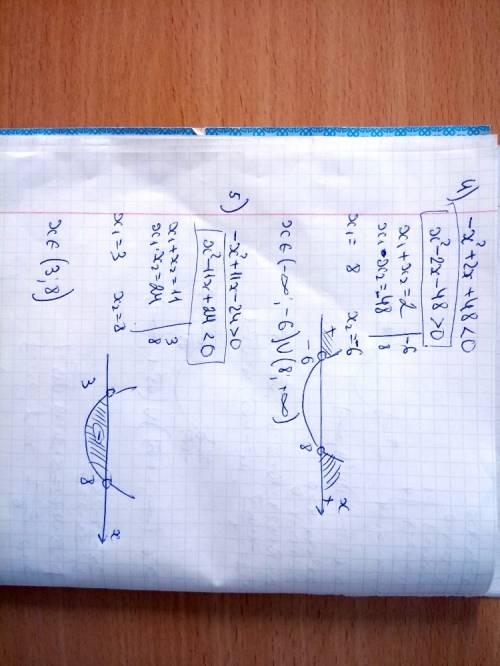 4) -x²+2x+48<0
x²-2x-48>0
x₁+x₂=2 | -6
x₁•x₂=-48 | 8
x₁= 8 x₂=-6
+ -6 8 + x
x∈(-∞;-6)∪(8;+∞)
5) -x²+11x-24>0
x²-11x+24<0
x₁+x₂=11 | 3
x₁·x₂=24 | 8
x₁=3 x₂=8
3 8 x
x∈(3;8)